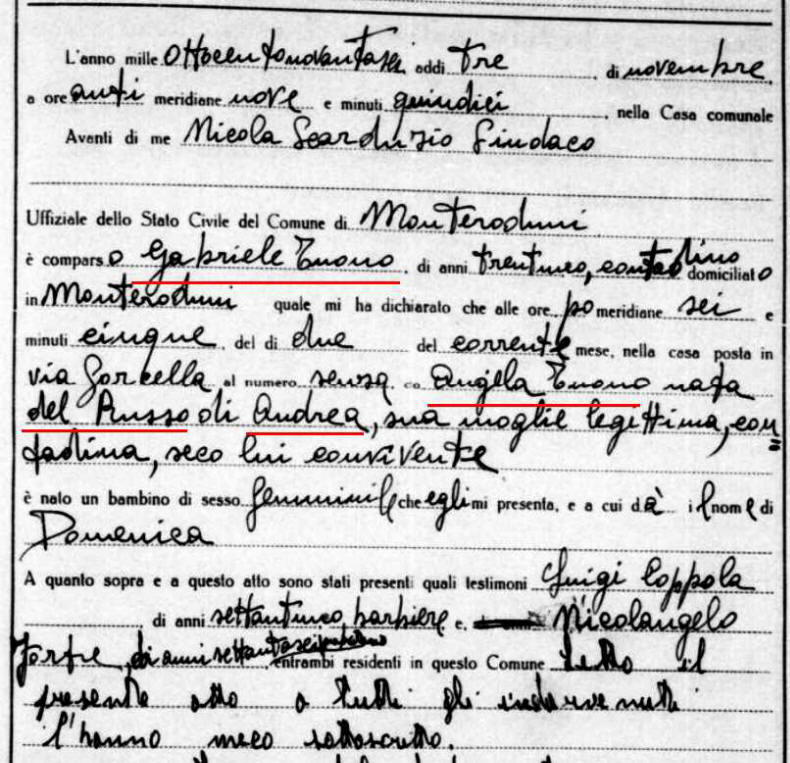 L'anno mille ottocentonovantasei addì tre di novembre,
a ore anti meridiane nove e minuti quindici, nella Casa comunale
Avanti di me Nicola Scarduzio Sindaco
Uffiziale dello Stato Civile del Comune di Monteroduni
è comparso Gabriele Tuono, di anni trentuno, contadino domiciliato
in Monteroduni quale mi ha dichiarato che alle ore po meridiane sei e
minuti cinque, del dì due del corrente mese, nella casa posta in
via Porcella al numero senza da Angela Tuono nata
del Russo di Andrea, sua moglie legittima, con=
tadina, seco lui convivente
è nato un bambino di sesso femminile che egli mi presenta, e a cui dà il nome di
Domenica
A quanto sopra e a questo atto sono stati presenti quali testimoni Luigi Coppola
di anni settantuno barbiere e, Nicolangelo
Forte, di anni settantasei entrambi residenti in questo Comune Letto il
presente atto a tutti gli intervenuti
l'hanno meco sottoscritto.